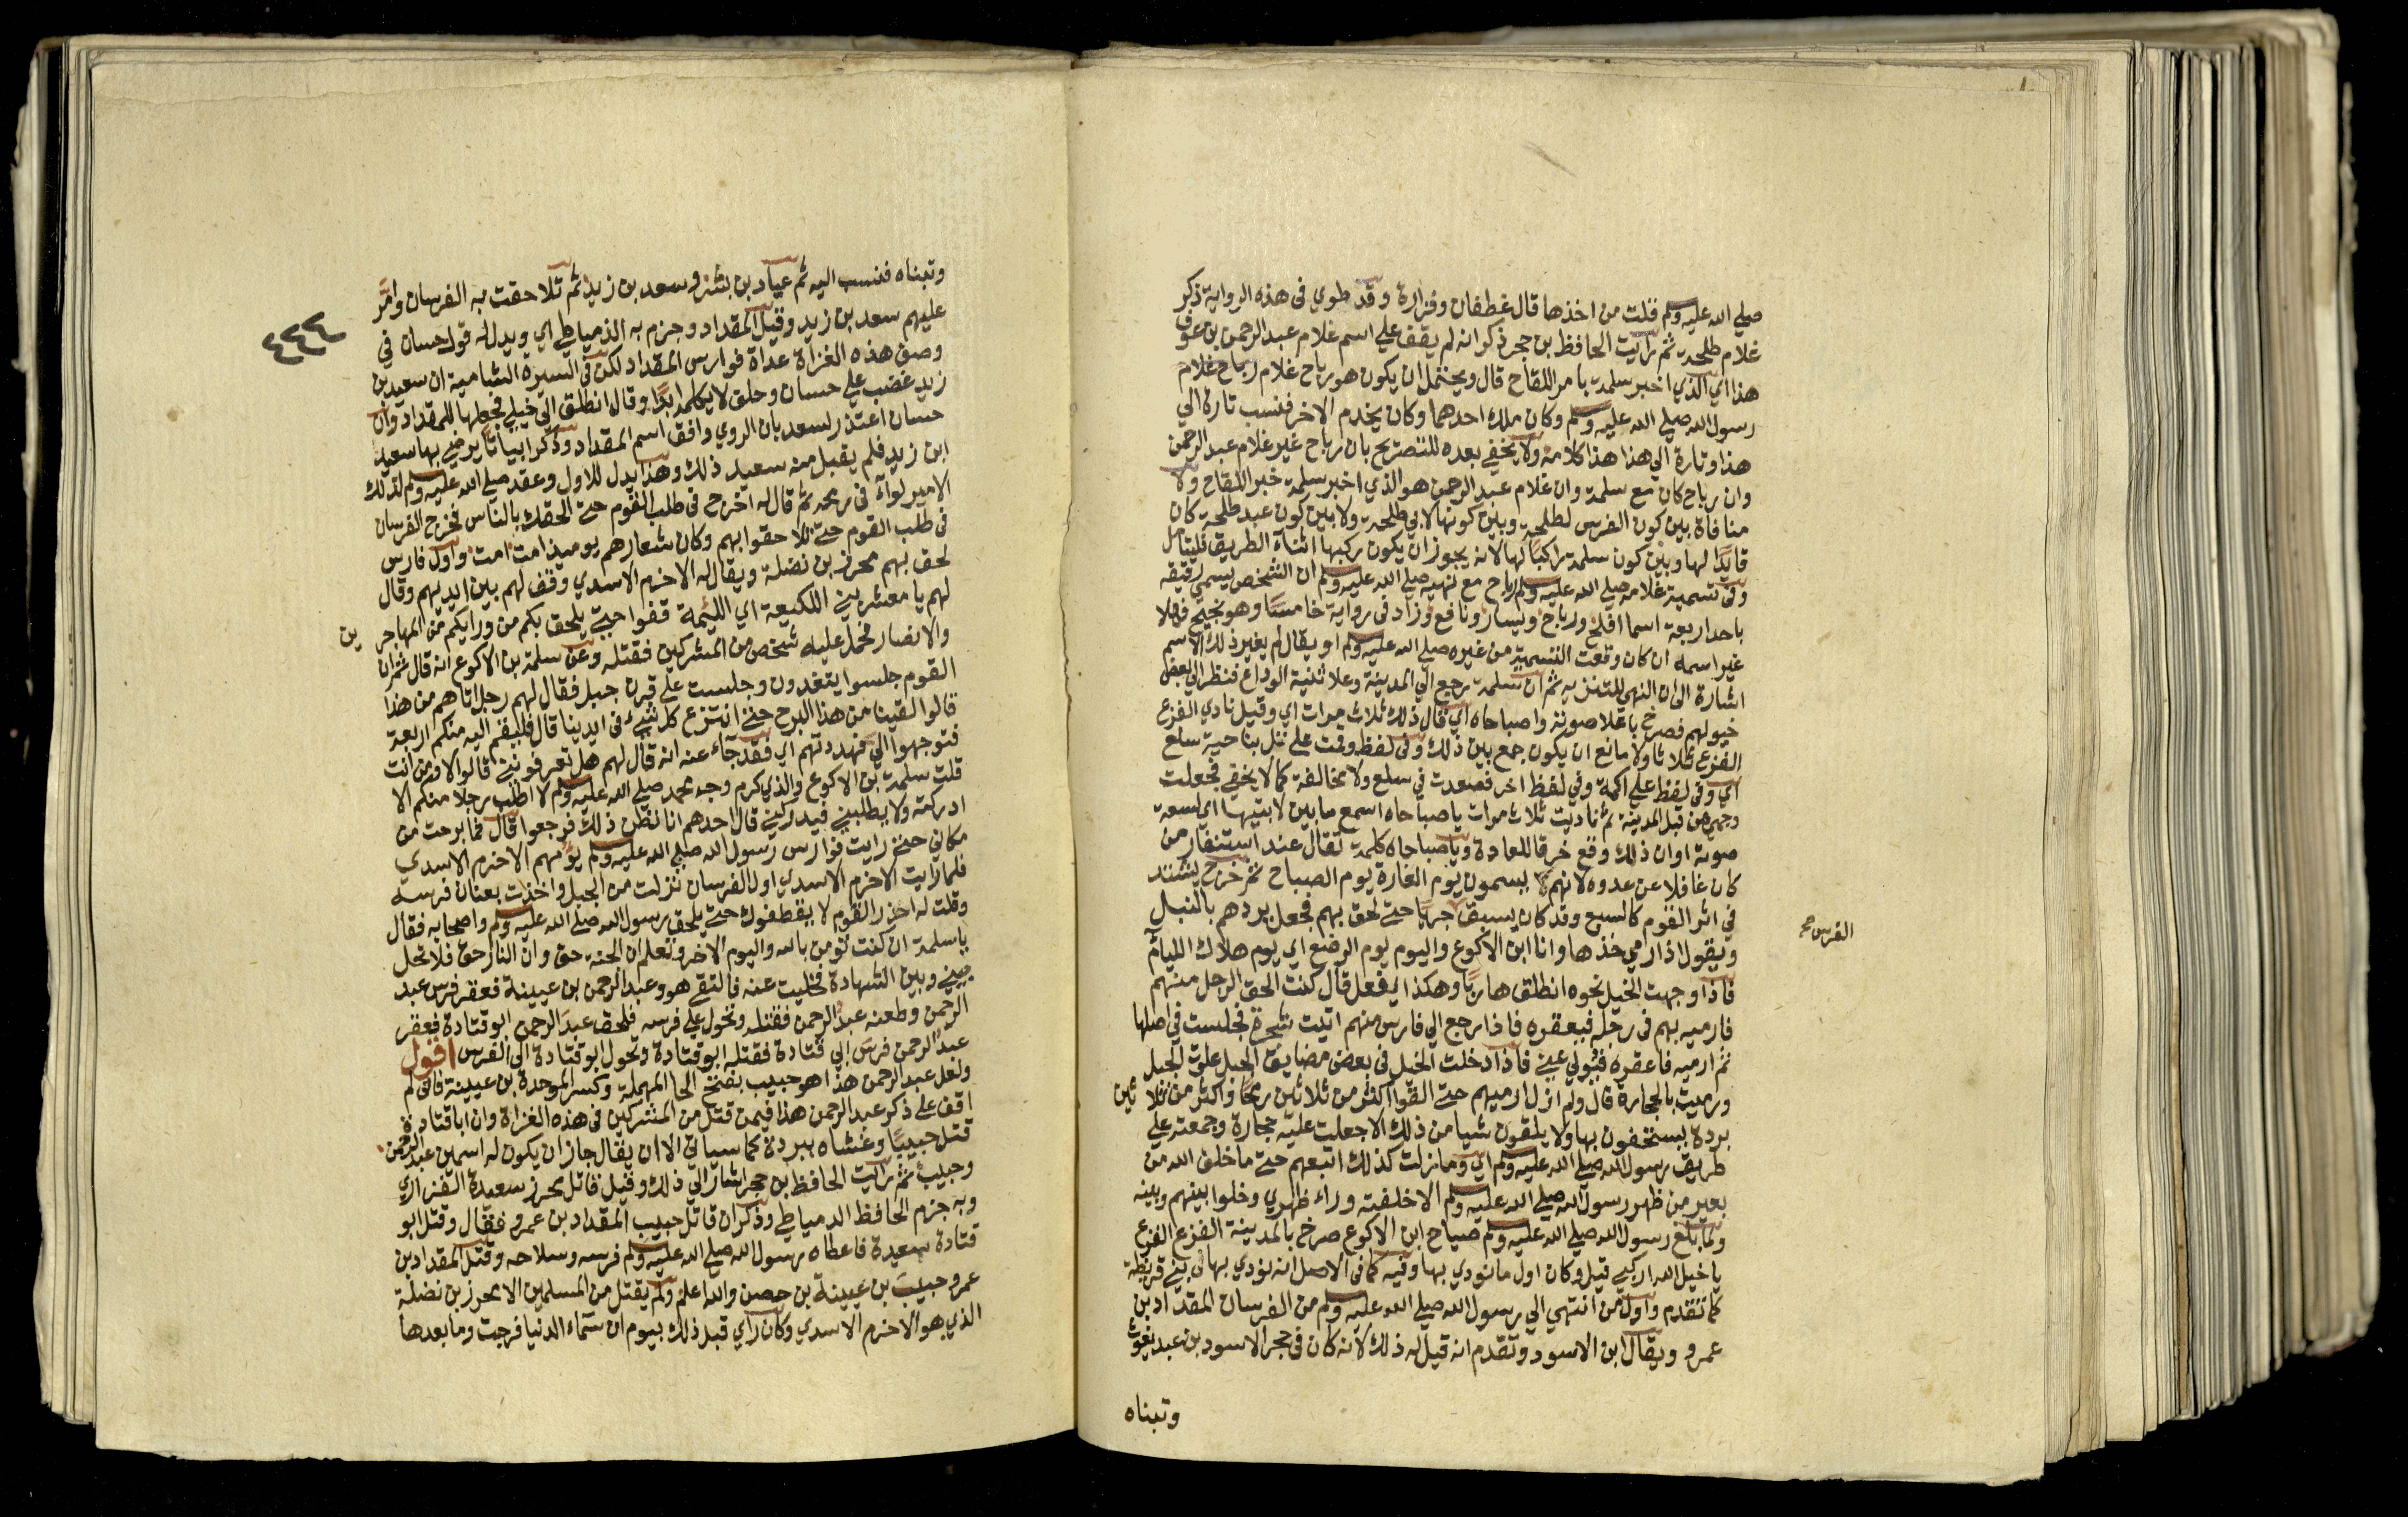 صلي الله عليه وسلم فقلت من اخذها قال غطفان وفزارة وقد طوي في هذه الرواية ذكر
غلام طلحة ثم رايت الحافظ بن حجر ذكر انه لم يقف علي اسم غلام عبد الرحمن بن عوف
هذا اي الذي اخبر سلمة بامر اللقاح قال ويحتمل ان يكون هو رباح غلام رباح غلام
رسول الله صلي الله عليه وسلم وكان ملك احدهما وكان يخدم الاخر فنسب تارة الي
هذا وتارة الي هذا هذا كلامه ولا يخفي بعده للتصريح بان رباح غير غلام عبد الرحمن
وان رباح كان مع سلمة وان غلام عبد الرحمن هو الذي اخبر سلمة خبر اللقاح ولا
منافاة بين كون الفرس لطلحة وبين كونها لابي طلحة ولا بين كون عبد طلحة كان
قايدًا لها وبين كون سلمة راكبًا لها لانه يجوز ان يكون ركبها اثناء الطريق فليتامل
وفي تسمية غلامه صلي الله عليه وسلم رباح مع نهيه صلي الله عليه وسلم ان الشخص يسمي رقيقه
باحد اربعة اسما افلح ورباح ويسار ونافع وزاد في رواية خامسًا وهو نجيح فهلا
غير اسمه ان كان وقعت التسمية من غيره صلي الله عليه وسلم او يقال لم يغير ذلك الاسم
اشارة الى ان النهي للتنزيه ثم ان سلمة رجع الي المدينة وعلا ثنية الوداع فنظر الي بعض
خيولهم فصرخ باعلا صوته واصباحاه اي قال ذلك ثلاث مرات اي وقيل نادي الفزع
الفزع ثلاثا ولا مانع ان يكون جمع بين ذلك وفي لفظ وقت علي تل بناحية سلع
اي وفي لفظ علي اكمة وفي لفظ اخر فصعدت في سلع ولا مخالفة كما لا يخفي فجعلت
وجهي من قبل المدينة ثم ناديت ثلاث مرات يا صباحاه اسمع ما بين لابتيها اي لسعة
صوته او ان ذلك وقع خرقا للعادة ويا صباحاه كلمة تقال عند استنفار من
كان غافلا عن عدوه لانهم يسمون يوم الغارة يوم الصباح ثم خرج يشتد
في اثر القوم كالسبع وقد كان يسبق جريا حتى لحق بهم فجعل يردهم بالنبل
الفرس صح
ويقول اذا رمي خذها وانا ابن الاكوع واليوم يوم الرضع اي يوم هلاك الليام
فاذا وجهت الخيل نحوه انطلق هاربًا وهكذا يفعل قال كنت الحق الرجل منهم
فارميه بهم في رجله فيعقره فاذا رجع الي فارس منهم اتيت شجرة فجلست في اصلها
ثم ارميه فاعقره فيولي عني فاذا دخلت الخيل في بعض مضايق الجبل علوت الجبل
ورميت بالحجارة قال ولم ازل ارميهم حتى القوا اكثر من ثلاثين رمحا واكثر من ثلاثين
بردة يستخفون بها ولا يلقون شيا من ذلك الا جعلت عليه حجارة وجمعته علي
طريق رسول الله صلي الله عليه وسلم اي وما زلت كذلك اتبعهم حتى ما خلق الله من
بعير من ظهر رسول الله صلي الله عليه وسلم الا خلفته وراء ظهري وخلوا بينهم وبينه
ولما بلغ رسول الله صلي الله عليه وسلم صياح ابن الاكوع صرخ بالمدينة الفزع الفزع
يا خيل الله اركبي قيل وكان اول ما نودي بها وفيه كما في الاصل انه نودي بها في بني قريظة
كما تقدم واول من انتهي الي رسول الله صلي الله عليه وسلم من الفرسان المقداد بن
عمرو ويقال ابن الاسود وتقدم انه قيل له ذلك لانه كان في حجر الاسود بن عبد يغوث
وتبناه
٤٤٤
وتبناه فنسب اليه ثم عباد بن بشر وسعد بن زيد ثم تلاحقت به الفرسان وامَّر
عليهم سعد بن زيد وقيل المقداد وجزم به الدمياطي اي ويدل له قول حسان في
وصف هذه الغزاة غداة فوارس المقداد لكن في السيرة الشامية ان سعيد بن
زيد غضب علي حسان وحلف لا يكلمه ابدًا وقال انطلق الي خيلي فجعلها للمقداد وان
حسان اعتذر لسعد بان الروي وافق اسم المقداد وذكر ابياتا يرضي بها سعيد
ابن زيد فلم يقبل منه سعيد ذلك وهذا يدل للاول وعقد صلي الله عليه وسلم لذلك
الامير لواء في رمحه ثم قال له اخرج في طلب القوم حتى الحقك بالناس فخرج الفرسان
في طلب القوم حتى تلاحقوا بهم وكان شعارهم يوميذ امت امت واول فارس
لحق بهم محرز بن نضلة ويقال له الاخرم الاسدي وقف لهم بين ايديهم وقال
لهم يا معشر بني اللكيعة اي اللئيمة قفوا حتى يلحق بكم من ورايكم من المهاجرين
والانصار فحمل عليه شخص من المشركين فقتله وعن سلمة بن الاكوع انه قال ثم ان
القوم جلسوا يتغدون وجلست علي قرن جبل فقال لهم رجل اتاهم من هذا
قالوا لقينا من هذا البرح حتى انتزع كل شيء في ايدينا قال فليقم اليه منكم اربعة
فتوجهوا الي فهددتهم اي فقد جاء عنه انه قال لهم هل تعرفوني قالوا لا ومن انت
قلت سلمة بن الاكوع والذي كرم وجه محمد صلي الله عليه وسلم لا اطلب رجلا منكم الا
ادركته ولا يطلبني فيدركني قال احدهم انا نظن ذلك فرجعوا قال فما برحت من
مكاني حتى رايت فوارس رسول الله صلي الله عليه وسلم يؤمهم الاخرم الاسدي
فلما رايت الاخرم الاسدي اول الفرسان نزلت من الجبل واخذت بعنان فرسه
وقلت له احذر القوم لا يقطفوك حتى يلحق رسول الله صلي الله عليه وسلم واصحابه فقال
يا سلمة ان كنت تومن بالله واليوم الاخر وتعلم ان الجنة حق وان النار حق فلا تحل
بيني وبين الشهادة فخليت عنه فالتقي هو وعبد الرحمن بن عيينة فعقر فرس عبد
الرحمن وطعنه عبد الرحمن فقتله وتحول علي فرسه فلحق عبد الرحمن ابو قتادة فعقر
عبد الرحمن فرس ابي قتادة فقتله ابو قتادة وتحول ابو قتادة الي الفرس اقول
ولعل عبد الرحمن هذا هو حبيب بفتح الحا المهملة وكسر الموحدة بن عيينة فاني لم
اقف علي ذكر عبد الرحمن هذا فيمن قتل من المشركين في هذه الغزاة وان ابا قتادة
قتل حبيبًا وغشاه ببردة كما سياتي الا ان يقال جاز ان يكون له اسمين عبد الرحمن
وحبيب ثم رايت الحافظ بن حجر اشار الي ذلك وقيل قاتل محرز سعيدة الفزاري
وبه جزم الحافظ الدمياطي وذكر ان قاتل حبيب المقداد بن عمرو فقال وقتل ابو
قتادة سعيدة فاعطاه رسول الله صلي الله عليه وسلم فرسه وسلاحه وقتل المقداد بن
عمرو حبيب بن عيينة بن حصن والله اعلم ولم يقتل من المسلمين الا محرز بن نضلة
الذي هو الاخرم الاسدي وكان راي قبل ذلك بيوم ان سماء الدنيا فرجت وما بعدها